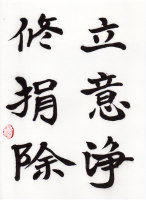 立意净
修捐除